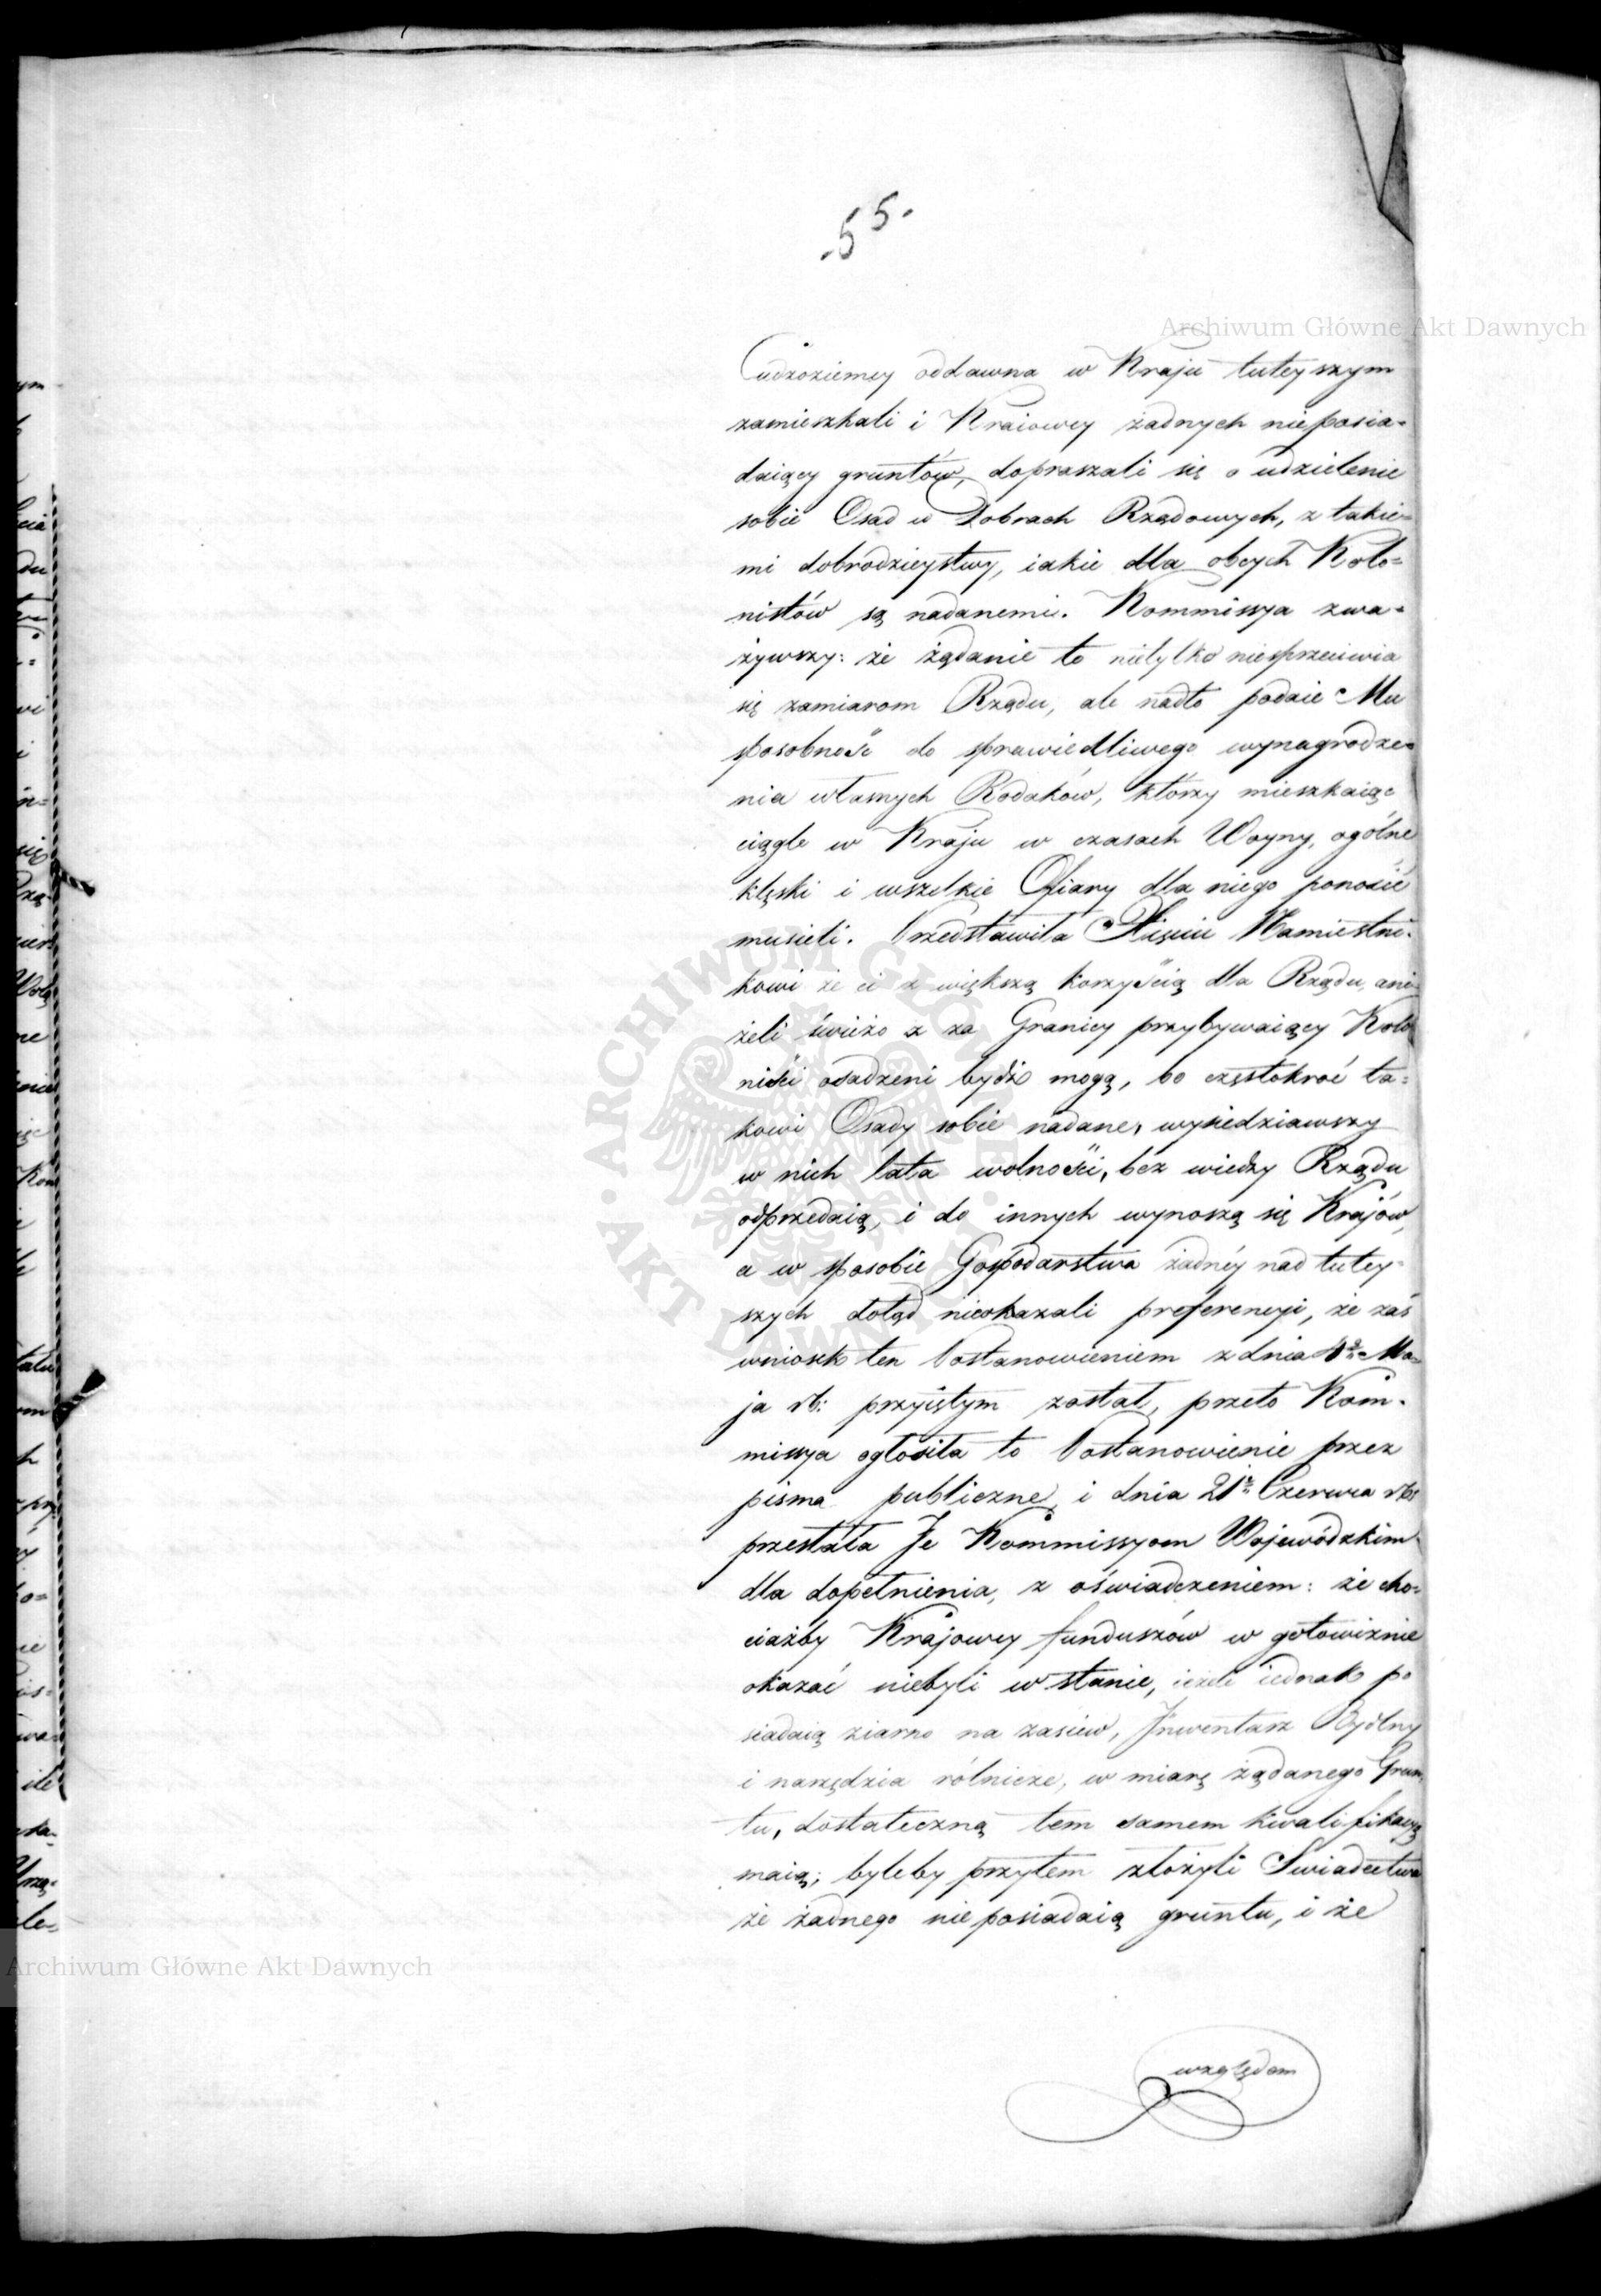 55.
Archiwum Główne Akt Dawnych
Cudzoziemcy oddawna w Kraju tuteyszym
zamieszkali i Kraiowcy żadnych nieposia-
daiący gruntów, dopraszali się o udzielenie
sobie Osad w Dobrach Rządowych, z takie-
mi dobrodzieystwy, iakie dla obcych Kolo-
nistów są nadanemi. Kommissya zwa-
żywszy: że żądanie to nietylko niesprzeciwia
się zamiarom Rządu, ale nadto podaie Mu
sposobność do sprawiedliwego wynagrodze-
nia własnych Rodaków, którzy mieszkaiąc
ciągle w Kraju w czasach Woyny, ogólne
klęski i wszelkie Ofiary dla niego ponosić
musieli. Przedstawiła Xięciu Namiestni-
kowi że ci z większą korzyścią dla Rządu, ani-
żeli świeżo z za Granicy przybywaiący Kolo
niści osadzeni bydź mogą, bo częstokroć ta-
kowi Osady sobie nadane, wysiedziawszy
w nich lata wolności, bez wiedzy Rządu
odprzedaią, i do innych wynoszą się Krajów,
a w sposobie Gospodarstwa żadnéy nad tutey-
szych dotąd nieokazali preferencyi, że zaś
wniosek ten Postanowieniem z dnia Ma-
ja rb: przyiętym został, przeto Kom-
missya ogłosiła to Postanowienie przez
pisma publiczne, i dnia 21 Czerwca rb:
przesłała Je Kommissyom Wojewódzkim
dla dopełnienia, z oświadczeniem: że cho-
ciażby Krajowcy funduszów w gotowiznie
okazać niebyli w stanie, ieżeli iednak po
siadaią ziarno na zasiew, Jnwentarz Bydlny
i narzędzia rólnicze, w miarę żądanego Grun
tu, dostateczną tem samem kwalifikacyą
maią; byleby przytem złożyli Swiadectwa
że żadnego nieposiadaią gruntu, i że
Archiwum Główne Akt Dawnych
względem
ARCHIWUM GŁÓWNE
AKT DAWNYCH